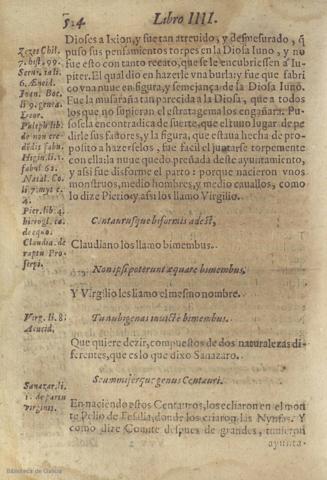 524 Libro IIII.
Dioses a Ixion, y fue tan atreuido, y desmesurado, q̃
puso sus pensamientos torpes en la Diosa Iuno, y no
fue esto con tanto recato, que se le encubriessen a Iu-
piter. El qual dio en hazerle vna burla: y fue que fabri
co vna nuue en figura, y semejança de la Diosa Iuno.
Fue la muraña tan parecida a la Diosa, que a todos
los que no supieran el estratagema los engañara. Pu-
sosela encontradiça de suerte, que el tuuo lugar de pe
dirle sus fauores, y la figura, que estaua hecha de pro-
posito a hazerselos, fue facil el juntarse torpemente
con ella: la nuue quedo preñada deste ayuntamiento,
y assi fue disforme el parto: porque nacieron vnos
monstruos, medio hombres, y medio cauallos, como
lo dize Pierio: y assi los llamo Virgilio.
Centaurusque biformis adest,
Claudiano los llamo bimembus.
Non ipsi poterunt æquare bimembus,
Y Virgilio les llamo el mesmo nombre.
Tu nubigenas inuicte bimembus.
Que quiere dezir, compuestos de dos naturalezas di-
ferentes, que es lo que dixo Sanazaro.
Semumiserque genus Centauri.
En naciendo estos Centauros, los echaron en el mon
te Pelio de Tesalia, donde los criaron las Nynfas. Y
como dize Comite despues de grandes, tunieron
ayunta-
Zezes Chil.
7. hist. 99.
Seru. in li.
6. Æneid.
Ioan. Boc.
li 9. genea.
Deor.
Palephlib:
de non cre
dẽdis fabu.
Higin. li. 1.
fabul 62.
Natal. Co.
li 7. myt c.
4.
Pier. lib 4.
hierogl. ca.
de equo.
Claudia. de
raptu Pro-
serpi.
Virg. li. 8.
Æneid.
Sanazar. li.
1. de partu
virginis.
Biblioteca de Galicia